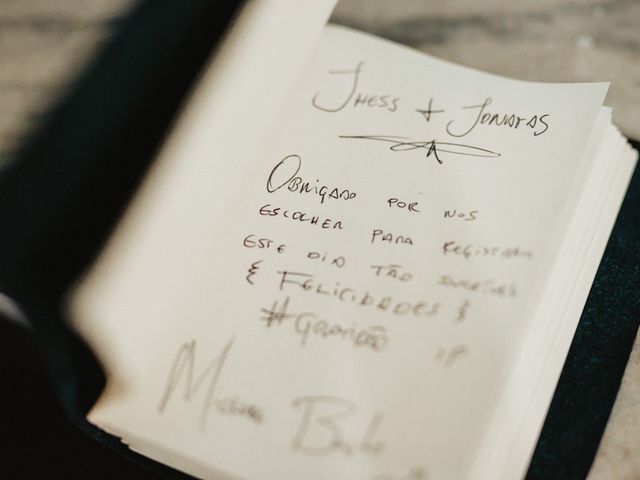 Jhess + Jonatas
Obrigado por nos
escolher para registrar
este dia tão
{ Felicidades }
#Gratidão